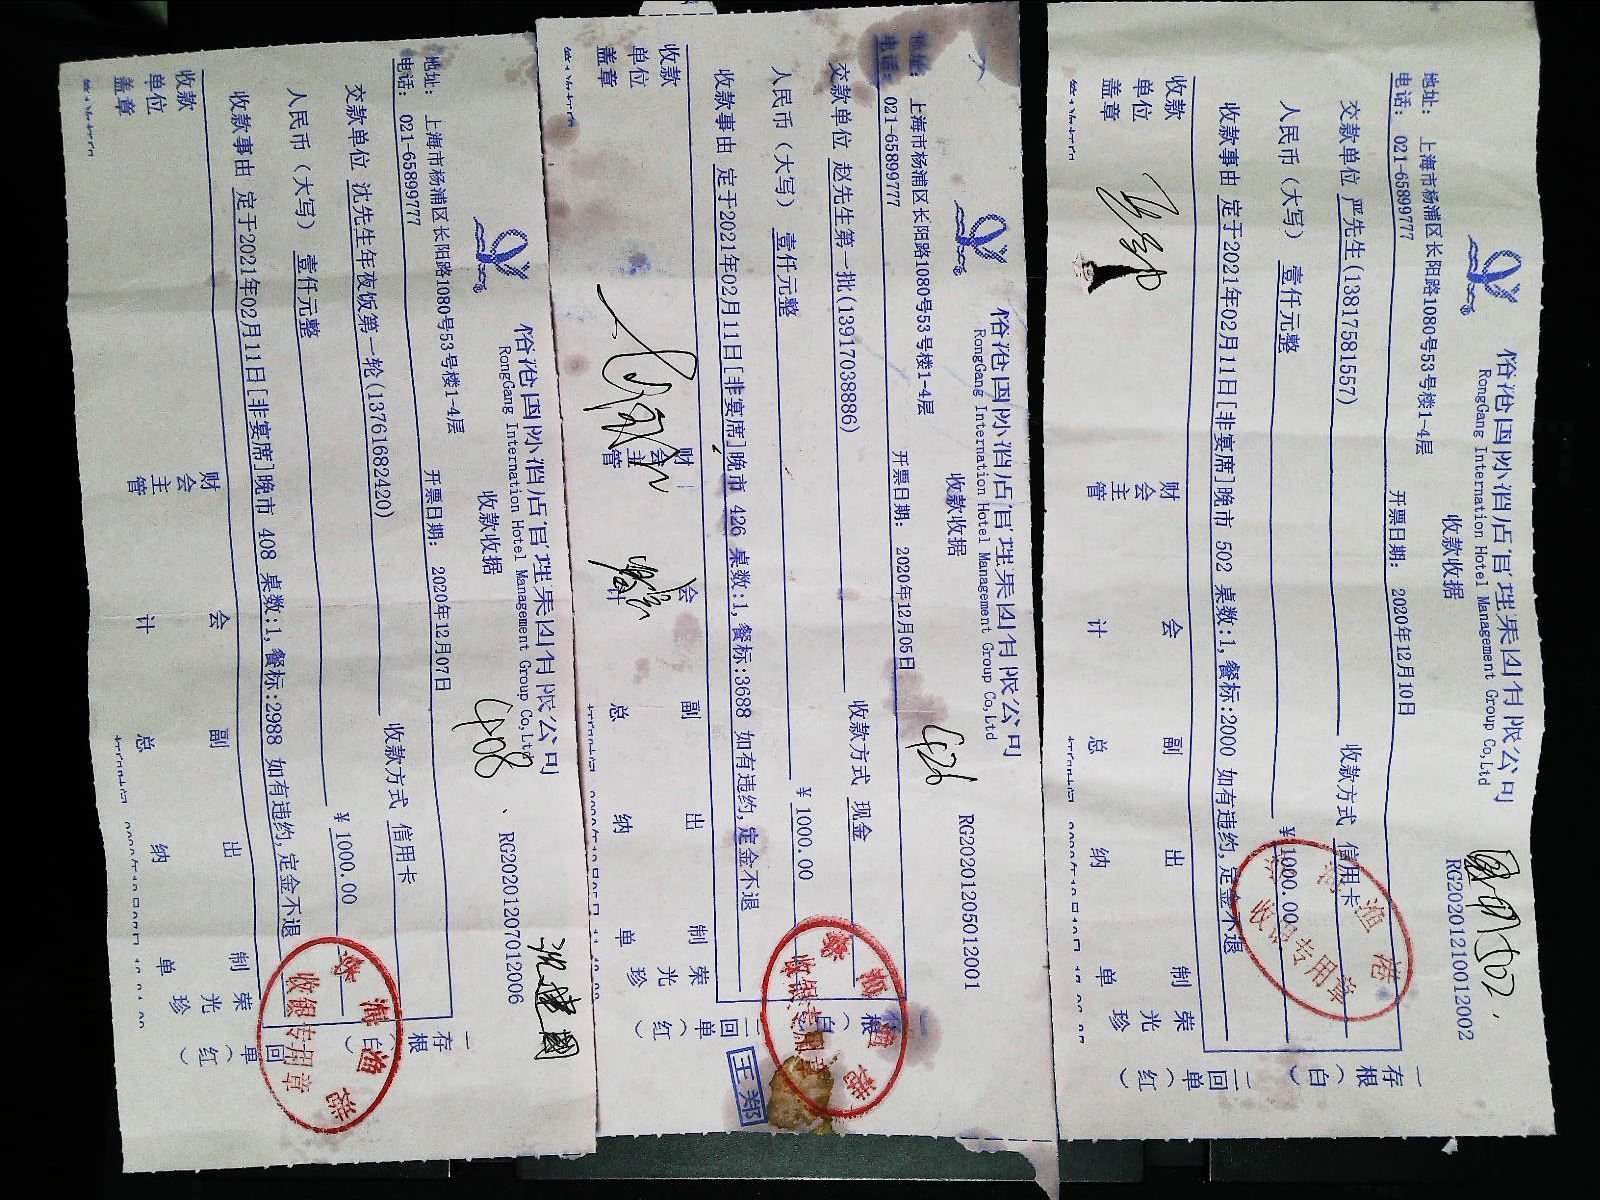 国际酒店管理集团有限公司
RongGang International Hotel Management Group Co,Ltd
收款收据
RG20201210012002
地址: 上海市杨浦区长阳路1080号53号楼1-4层
电话: 021-65899777
开票日期: 2020年12月10日
交款单位 严先生(13817581557)
收款方式 信用卡
人民币（大写） 壹仟元整
¥ 1000.00
收款事由 定于2021年02月11日[非宴席]晚市 502 桌数:1,餐标:2000 如有违约,定金不退
收款单位盖章
财会主管
会计
副总
出纳
制单
荣光珍
一存根（白）二回单（红）
渔港
收银专用章
国际酒店管理集团有限公司
RongGang International Hotel Management Group Co,Ltd
收款收据
426
RG20201205012001
地址: 上海市杨浦区长阳路1080号53号楼1-4层
电话: 021-65899777
开票日期: 2020年12月05日
交款单位 赵先生第一批(13917038886)
收款方式 现金
人民币（大写） 壹仟元整
¥ 1000.00
收款事由 定于2021年02月11日[非宴席]晚市 426 桌数:1,餐标:3688 如有违约,定金不退
收款单位盖章
财会主管
会计
副总
出纳
制单
荣光珍
根（白）二回单（红）
王郑
国际酒店管理集团有限公司
RongGang International Hotel Management Group Co,Ltd
收款收据
408
RG20201207012006
地址: 上海市杨浦区长阳路1080号53号楼1-4层
电话: 021-65899777
开票日期: 2020年12月07日
交款单位 沈先生年夜饭第一轮(13761682420)
收款方式 信用卡
人民币（大写） 壹仟元整
¥ 1000.00
收款事由 定于2021年02月11日[非宴席]晚市 408 桌数:1,餐标:2988 如有违约,定金不退
收款单位盖章
财会主管
会计
副总
出纳
制单
荣光珍
一存根（白）二回单（红）
收银专用章